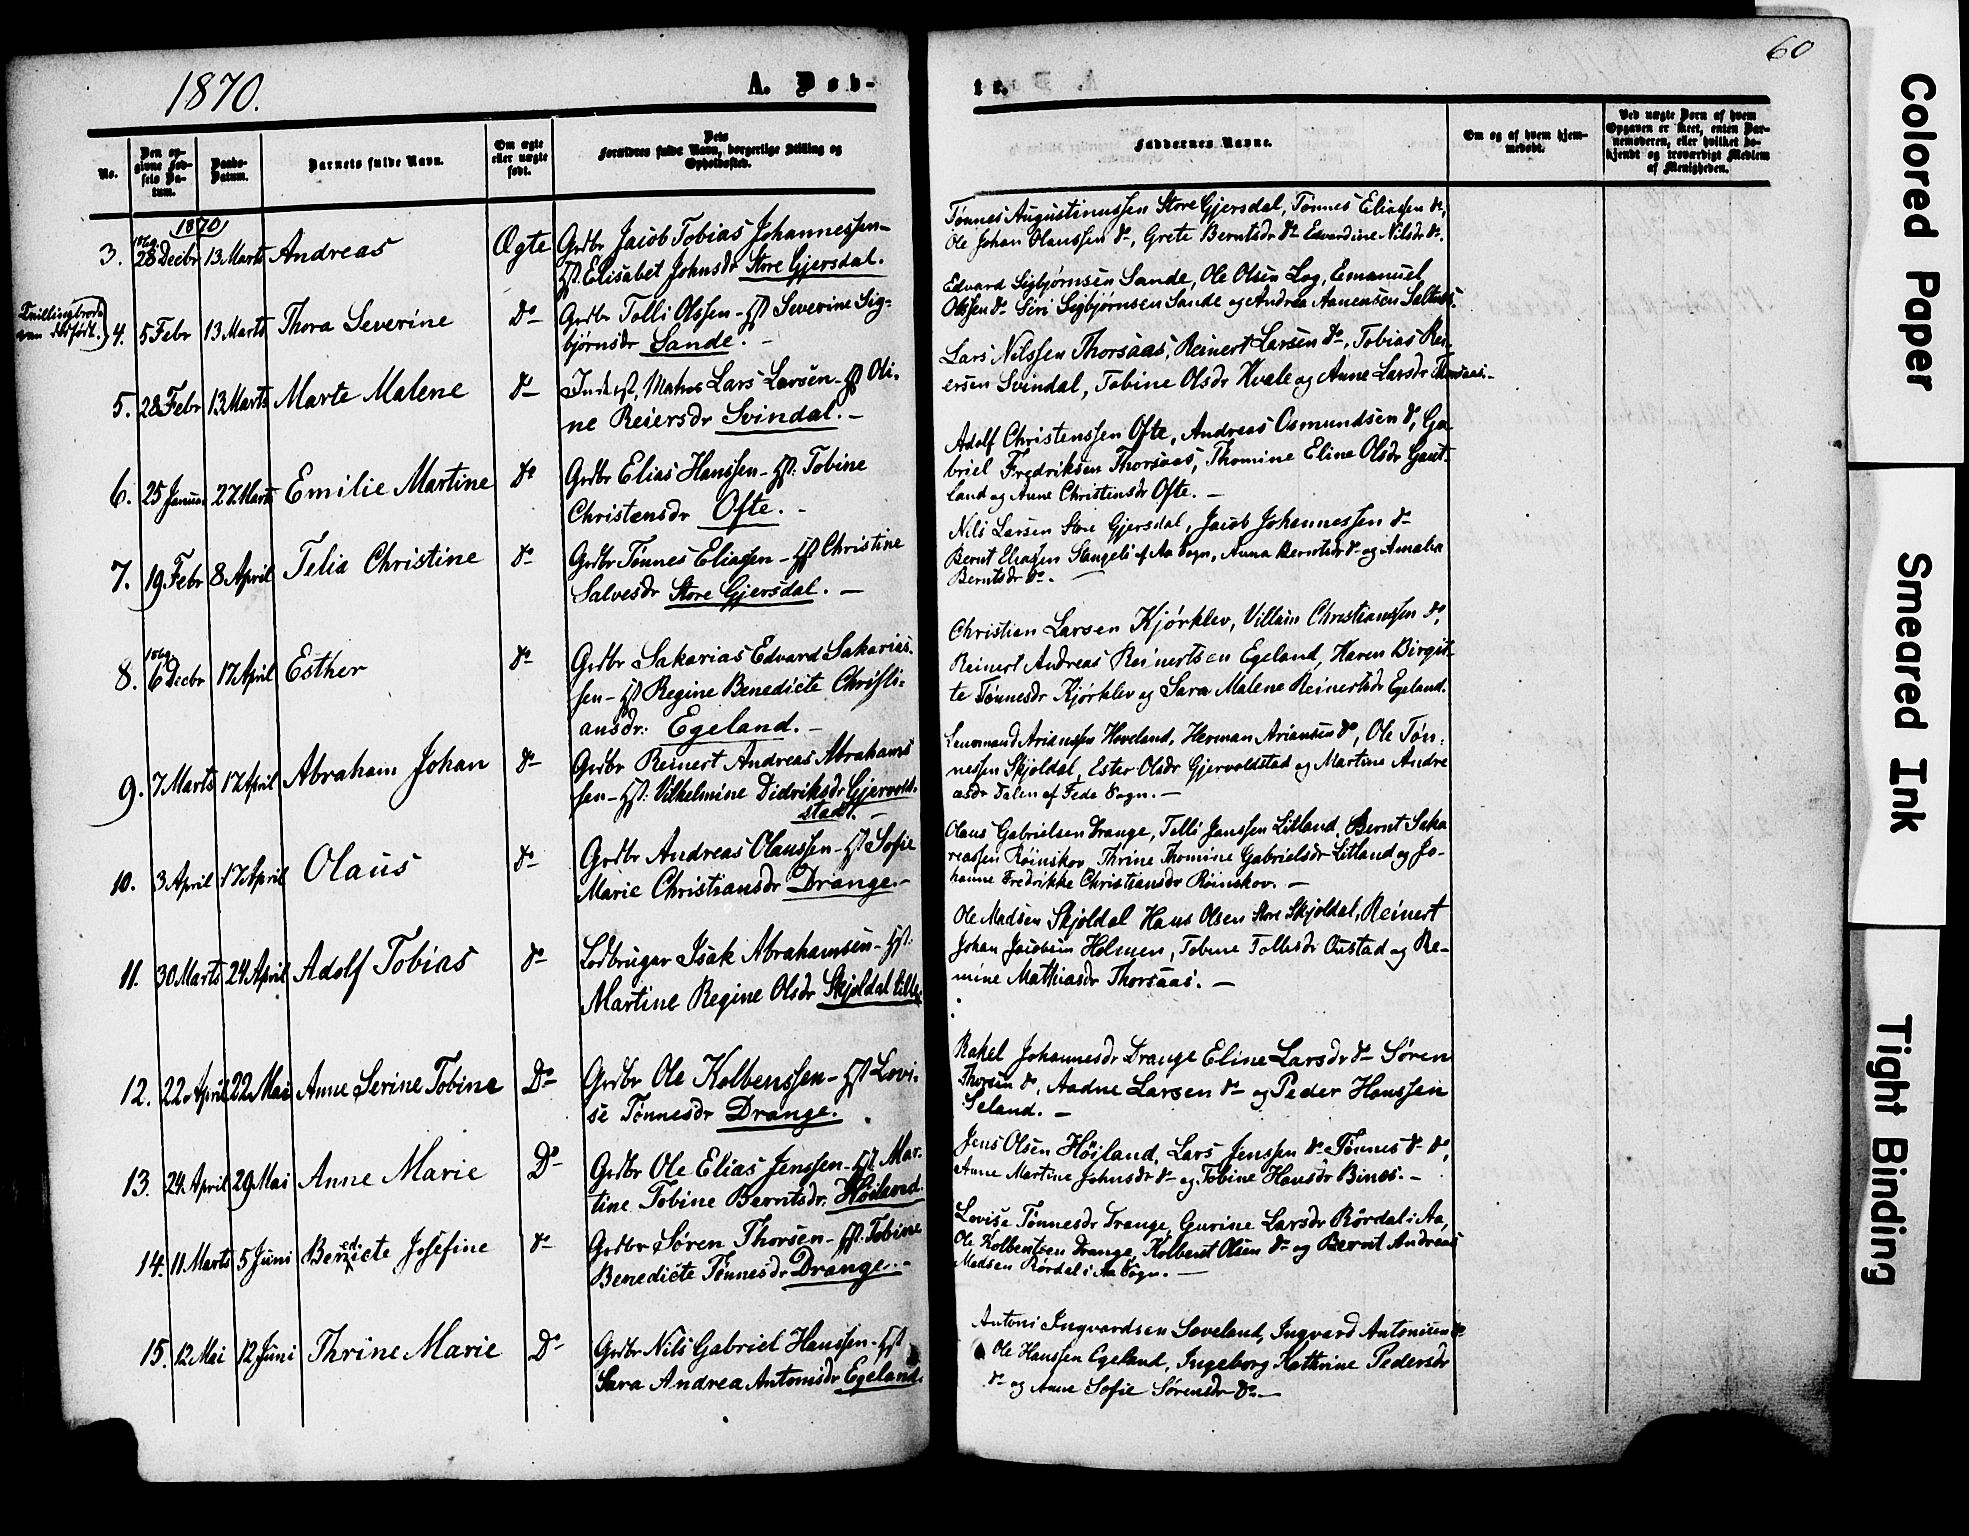 1870.
A. Døb-
te.
60
No.
Den op-
givne Fød-
sels Da-
tum.
Daabs-
Datum.
Barnets fulde Navn.
Om ægte
eller uægte
født.
Dets
Forældres fulde Navn, borgerlige Stilling og
Opholdssted.
Faddernes Navne.
Om og af hvem hjem-
medøbt.
Ved uægte Børn af hvem
Opgaven er skeet, enten Bar-
nemoderen, eller hvilket be-
kjendt og troværdigt Medlem
af Menigheden.
1870
3. 1869 28 Decbr 13 Marts Andreas Ægte Grdbr Jacob Tobias Johannessen-
Hst. Elisabet Johnsdr Store Gjersdal.
Tønnes Augustinussen Store Gjersdal, Tønnes Eliassen do,
Ole Johan Olaussen do, Grete Berntsdr do Edvardine Nilsdr do.
Tvillingbrode-
ren dødfødt.
4. 5 Febr 13 Marts Thora Severine do Grdbr Tolli Olssen - Hst Severine Sig-
bjørnsdr Sande. -
Edvard Sigbjørnsen Sande, Ole Olsen Log, Emanuel
Olssen do Siri Sigbjørnsen Sande og Andrea Aanensen
5. 28 Febr 13 Marts Marte Malene do Inderst, Matros Lars Larsen - Hst Oli-
ne Reiersdr Svindal. -
Lars Nilssen Thorsaas, Reinert Larsen do, Tobias Rei-
ersen Svindal, Tobine Olsdr Hvale og Anne Larsdr Thorsaas. -
6. 25 Januar 27 Marts Emilie Martine do Grdbr Elias Hanssen - Hst: Tobine
Christensdr Ofte. -
Adolf Christenssen Ofte, Andreas Osmundsen do, Ga-
briel Fredriksen Thorsaas, Thomine Eline Olsdr Gaut-
land og Anne Christensdr Ofte. -
7. 19 Febr 8 April Telia Christine do Grdbr Tønnes Eliassen - Hst Christine
Salvesdr Store Gjersdal. -
Nils Larsen Store Gjersdal, Jacob Johannessen do
Bernt Eliassen Stangeli af Aa Sogn, Anna Berntsdr do og Amalia
Berntsdr do. -
8. 1869 6 Decbr 17 April Esther do Grdbr Sakarias Edvard Sakarias-
sen - Hst Regine Benedicte Christi-
ansdr: Egeland. -
Christian Larsen Kjørklev, Villum Christianssen do,
Reinert Andreas Reinertsen Egeland, Karen Birgit-
te Tønnesdr Kjørklev og Sara Malene Reinertsdr Egeland.
9. 7 Marts 17 April Abraham Johan do Grdbr Reinert Andreas Abrahams
sen - Hst: Vilhelmine Didriksdr Gjervold-
stad. -
Lensmand Arianssen Hoveland, Herman Ariansen do, Ole Tøn-
nessen Skjoldal, Ester Olsdr Gjervoldstad og Martine Andre
asdr Dalen af Feda Sogn. -
10. 3 April 17 April Olaus do Grdbr Andreas Olaussen - Hst Sofie
Marie Christiansdr Drange. -
Olaus Gabrielsen Drange, Tolli Janssen Litland, Bernt Saka
reassen Røinskov, Thrine Thomine Gabrielsdr Litland og Jo-
hanne Fredrikke Christiansdr Røinskov. -
11. 30 Marts 24 April Adolf Tobias do Lodbruger Isak Abrahamsen - Hst:
Martine Regine Olsdr Skjoldal lille
Ole Madsen Skjoldal Hans Olsen Store Skjoldal, Reinert
Johan Jacobsen Holmen, Tobine Tollesdr Oustad og Re-
mine Mathiasdr Thorsaas. -
12. 22 April 22 Mai Anne Serine Tobine Do Grdbr Ole Kolbenssen - Hst Lovi-
se Tønnesdr Drange.
Rakel Johannesdr Drange Eline Larsdr do Søren
Thorsen do, Aadne Larsen do og Peder Hanssen
Seland. -
13. 24 April 29 Mai Anne Marie Do Grdbr Ole Elias Jenssen - Hst Mar-
tine Tobine Berntsdr. Høiland.
Jens Olsen Høiland, Lars Jenssen do Tønnes do do,
Anne Martine Johnsdr do og Tobine Hansdr Binas. -
14. 11 Marts 5 Juni Benedicte Josefine do Grdbr Søren Thorsen - Hst. Tobine
Benedicte Tønnesdr Drange. -
Lovise Tønnesdr Drange, Gurine Larsdr Rørdal i Aa,
Ole Kolbentsen Drange, Kolbent Olsen do og Bernt Andreas
Madsen Rørdal i Aa Sogn. -
15. 12 Mai 12 Juni Thrine Marie Do Grdbr Nils Gabriel Hanssen - Hst
Sara Andrea Antonisdr Egeland.
Antoni Ingvardsen Soveland, Ingvard Antonisen do
Ole Hanssen Egeland, Ingeborg Kathrine Pedersdr
do og Anne Sofie Sørensdr do -
Colored Paper
Smeared Ink
Tight Binding